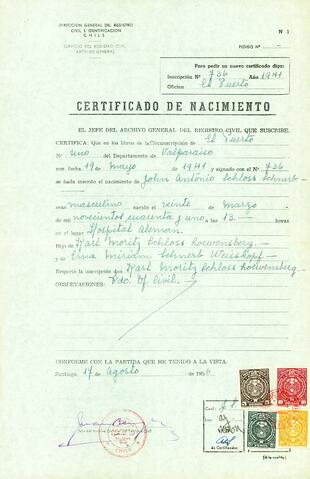 DIRECCION GENERAL DEL REGISTRO
CIVIL E IDENTIFICACION
CHILE
SERVICIO DEL REGISTRO CIVIL
ARCHIVO GENERAL
N 1
PEDIDO N°
Para pedir un nuevo certificado diga:
Inscripción N° 736 Año 1941
Oficina El Puerto
CERTIFICADO DE NACIMIENTO
EL JEFE DEL ARCHIVO GENERAL DEL REGISTRO CIVIL QUE SUSCRIBE.
CERTIFICA: Que en los libros de la Circunscripción de El Puerto
N° uno del Departamento de Valparaiso
con fecha 19 de mayo de 1941 y signado con el N° 736
se halla inscrito el nacimiento de John Antonio Schloss Schnerb.-
sexo masculino nacido el veinte de Marzo.-
de mil novecientos cuarenta y uno, a las 13.— horas
en el lugar Hospital Aleman.—
Hijo de Karl Moritz Schloss Loewensberg.—
y de Erna Miriam Schnerb Weisskopf.—
Requirió la inscripción don Karl Moritz Schloss Loewensberg.—
OBSERVACIONES: Pdo. Of. Civil.—
CONFORME CON LA PARTIDA QUE HE TENIDO A LA VISTA.
Santiago, 17 de Agosto de 1956
CHILE
de Certificados
(A la vuelta)